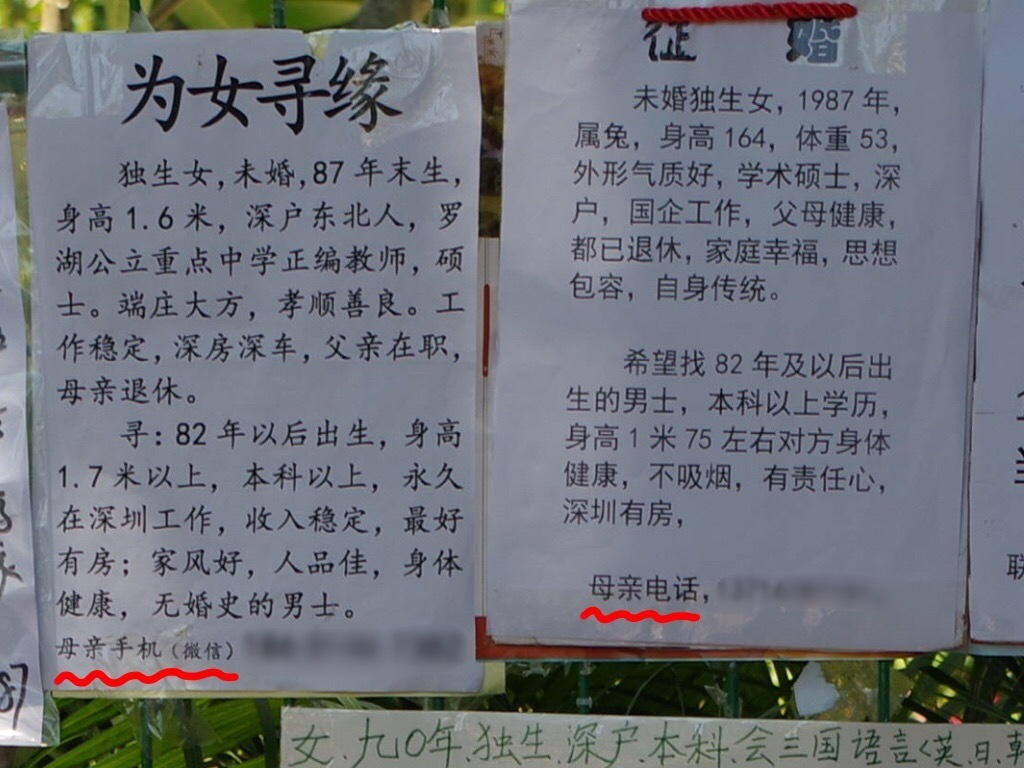 为女寻缘
独生女,未婚,87年末生,
身高1.6米，深户东北人，罗
湖公立重点中学正编教师，硕
士。端庄大方，孝顺善良。工
作稳定,深房深车,父亲在职,
母亲退休。
寻:82年以后出生，身高
1.7米以上，本科以上，永久
在深圳工作，收入稳定，最好
有房；家风好，人品佳，身体
健康，无婚史的男士。
母亲手机（微信）
征 婚
未婚独生女，1987年，
属兔，身高164，体重53，
外形气质好，学术硕士，深
户，国企工作，父母健康，
都已退休，家庭幸福，思想
包容，自身传统。
希望找82年及以后出
生的男士，本科以上学历，
身高1米75左右对方身体
健康，不吸烟，有责任心，
深圳有房，
母亲电话，
联
87
女.九0年.独生.深户.本科.会三国语言<英.日.韩